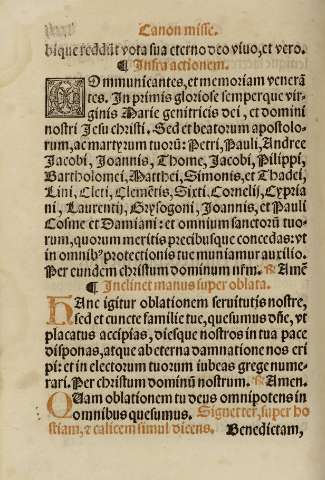 Canon misse.
bique reddūt vota sua eterno deo viuo, et vero.
¶ Infra actionem.
COmmunicantes, et memoriam venerā
tes. In primis gloriose semperque vir-
ginis Marie genitricis dei, et domini
nostri Jesu christi. Sed et beatorum apostolo-
rum, ac martyrum tuorū: Petri, Pauli, Andree
Jacobi, Joannis, Thome, Jacobi, Pilippi,
Bartholomei, Matthei, Simonis, et Thadei,
Lini, Cleti, Clemētis, Sixti, Cornelij, Cypria
ni, Laurentij, Grysogoni, Joannis, et Pauli
Cosme et Damiani: et omnium sanctorū tuo-
rum, quorum meritis precibusque concedas: vt
in omnibꝰ protectionis tue muniamur auxilio.
Per eundem christum dominum nr̄m. ℟ Amē
¶ Inclinet manus super oblata.
HAnc igitur oblationem seruitutis nostre,
sed et cuncte familie tue, quesumus dñe, vt
placatus accipias, diesque nostros in tua pace
disponas, atque ab eterna damnatione nos eri
pi: et in electorum tuorum iubeas grege nume-
rari. Per christum dominū nostrum. ℟ Amen.
QUam oblationem tu deus omnipotens in
omnibus quesumus. Signet ter, super ho
stiam, ⁊ calicem simul dicens. Benedictam,